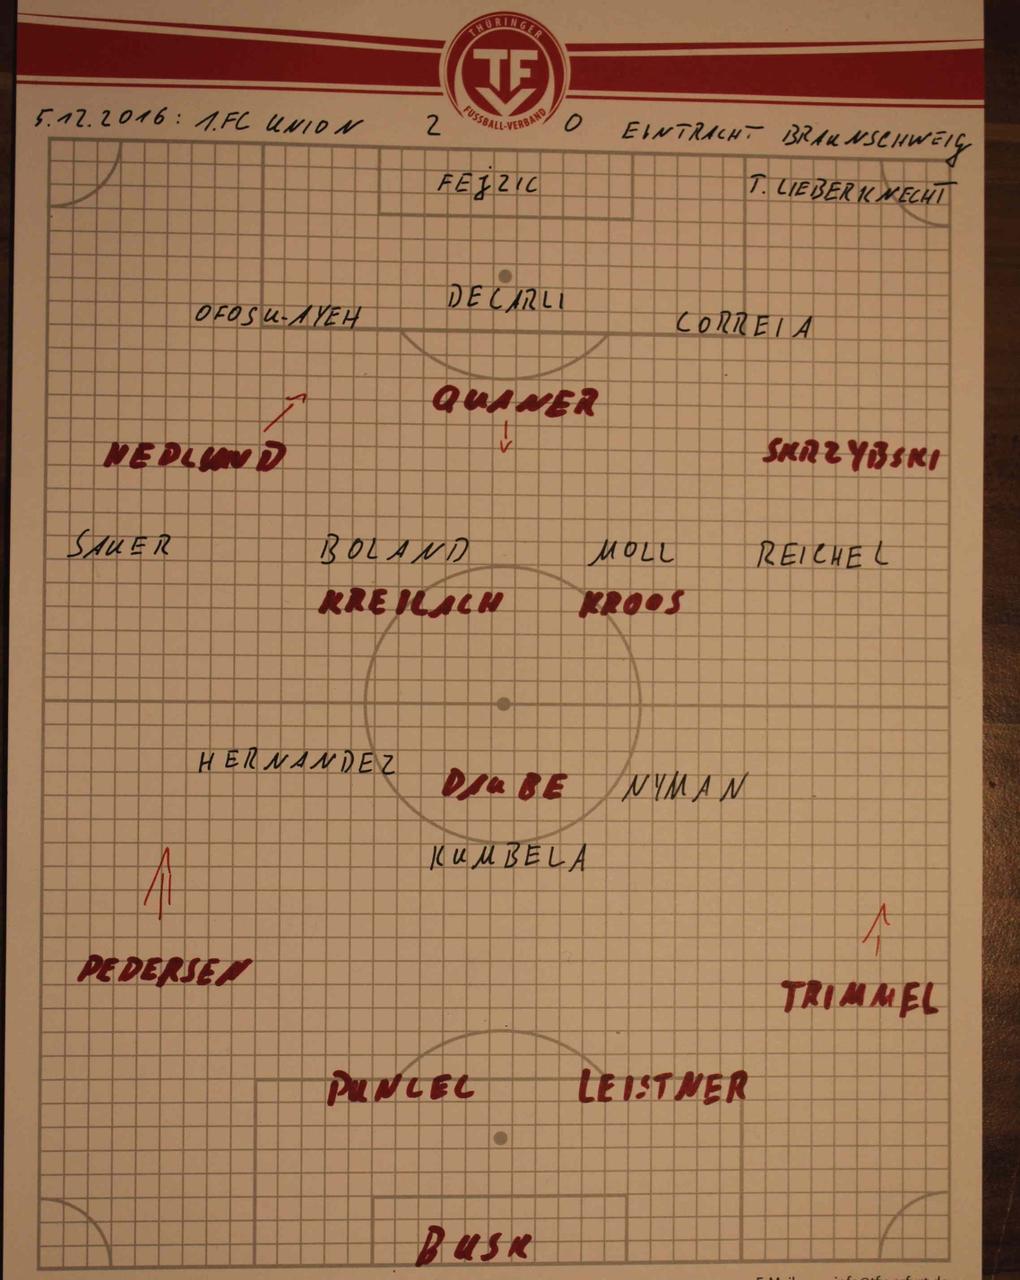 THÜRINGER
TFV
FUSSBALL-VERBAND
5.12.2016: 1.FC UNION 2 0 EINTRACHT BRAUNSCHWEIG
FEJZIC T. LIEBERKNECHT
DECARLI
OFOSU-AYEH CORREIA
QUANER
HEDLUND SKRZYBSKI
SAUER BOLAND MOLL REICHEL
KREILACH KROOS
HERNANDEZ
DAUBE NYMAN
KUMBELA
PEDERSEN
TRIMMEL
PUNCEC LEISTNER
BUSK